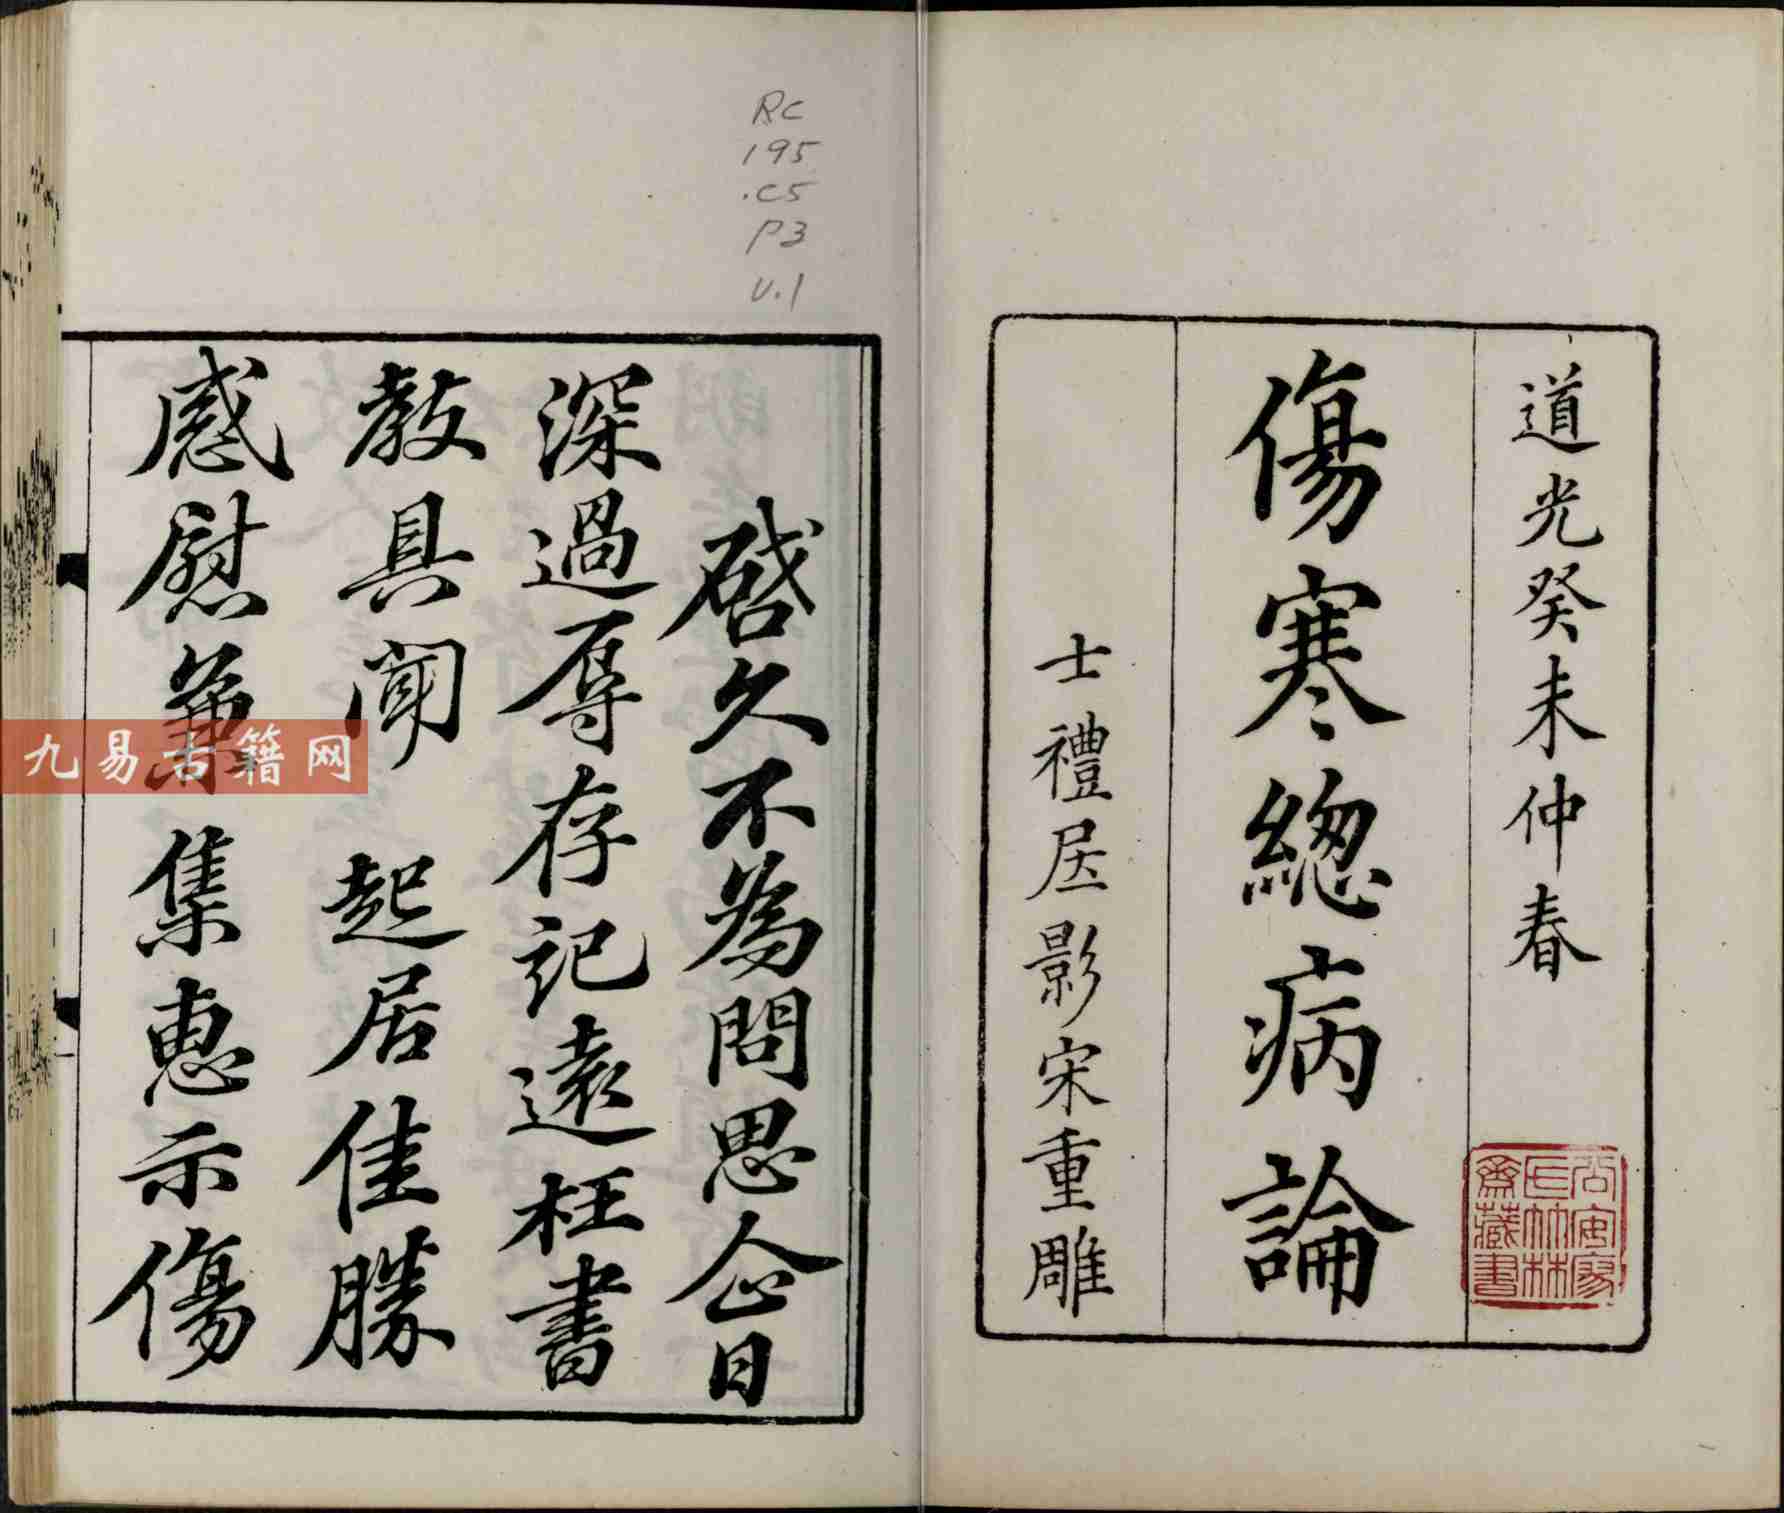 道光癸未仲春
傷寒緫病論
士禮居影宋重雕
齋藏書
RC
195
.C5
P3
V.1
啓久不為問思企日
深過辱存記遠枉書
教具聞 起居佳勝
感慰兼集惠示傷
九易古籍网